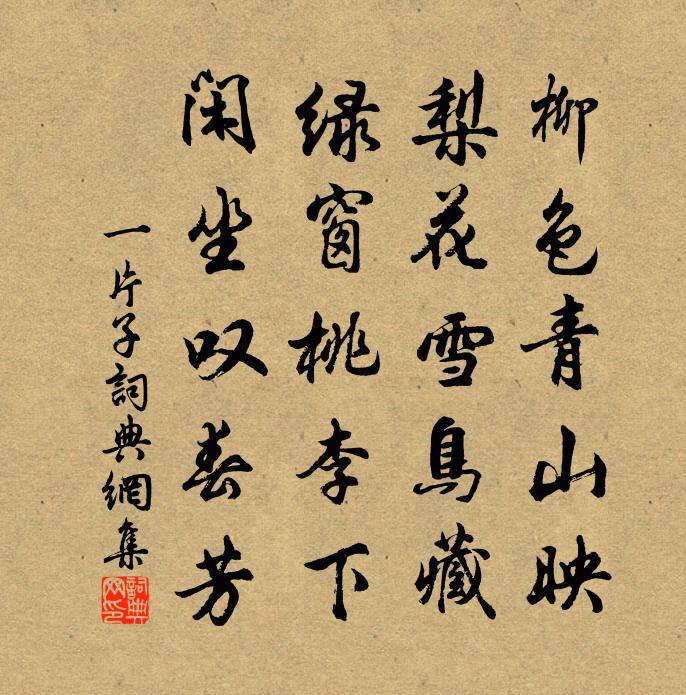 柳色青山映
梨花雪鳥藏
绿窗桃李下
闲坐叹春芳
一片子詞典網集
詞典
网印